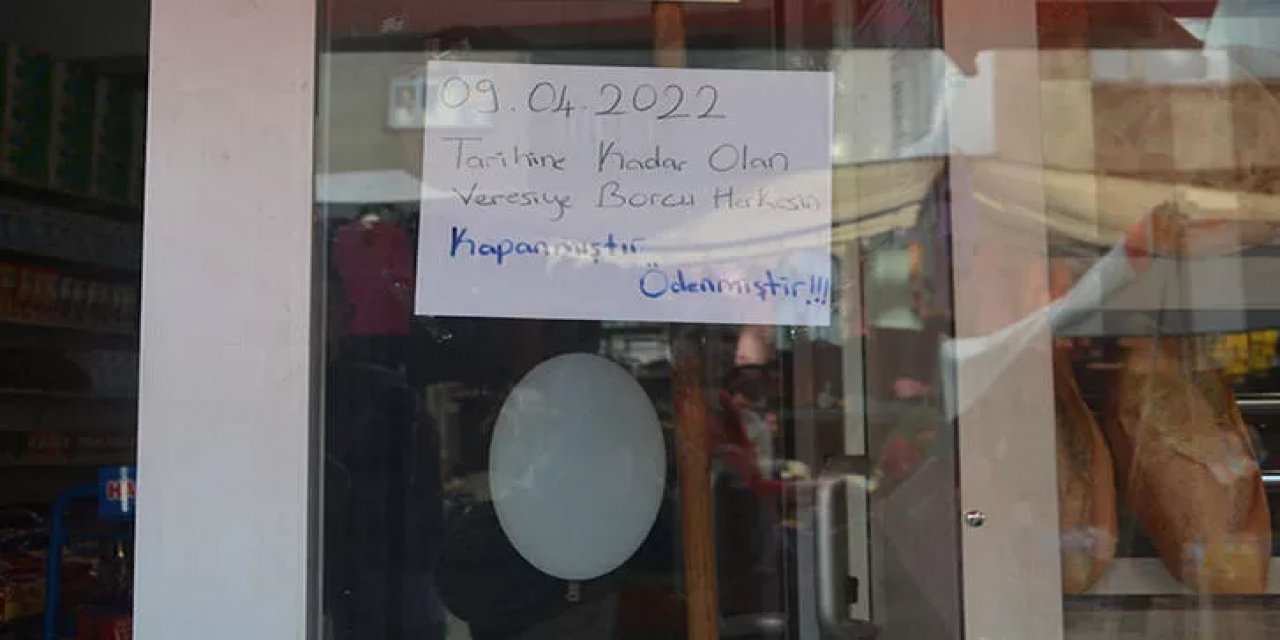 09.04.2022
Tarihine Kadar Olan
Veresiye Borcu Herkesin
Kapanmıştır
Ödenmiştir!!!